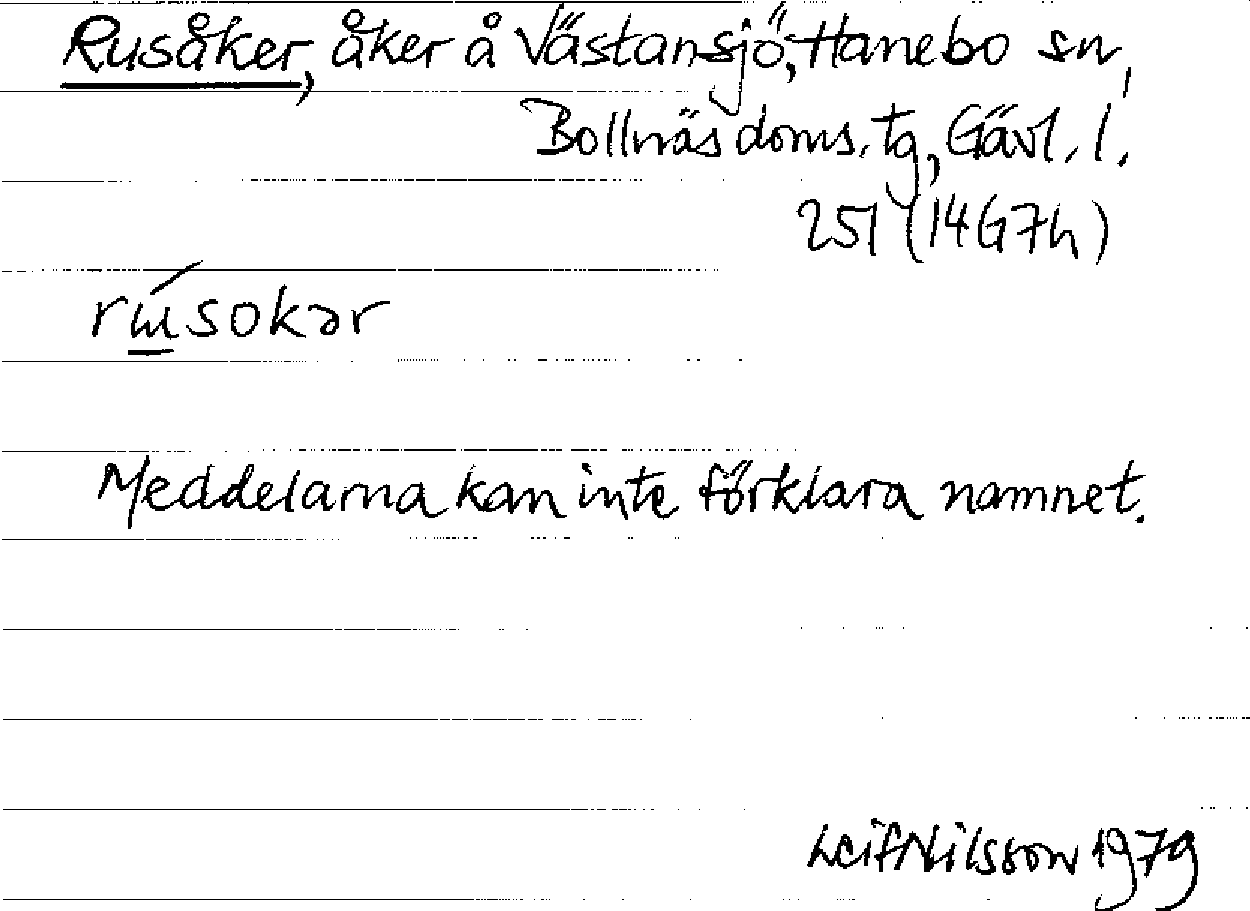 Rusåker, åker å Västansjö, Hanebo sn,
Bollnäs doms. tg, Gävl. l.
251 (14G7h)
rɯ́sokər
Meddelarna kan inte förklara namnet.
Leif Nilsson 1979